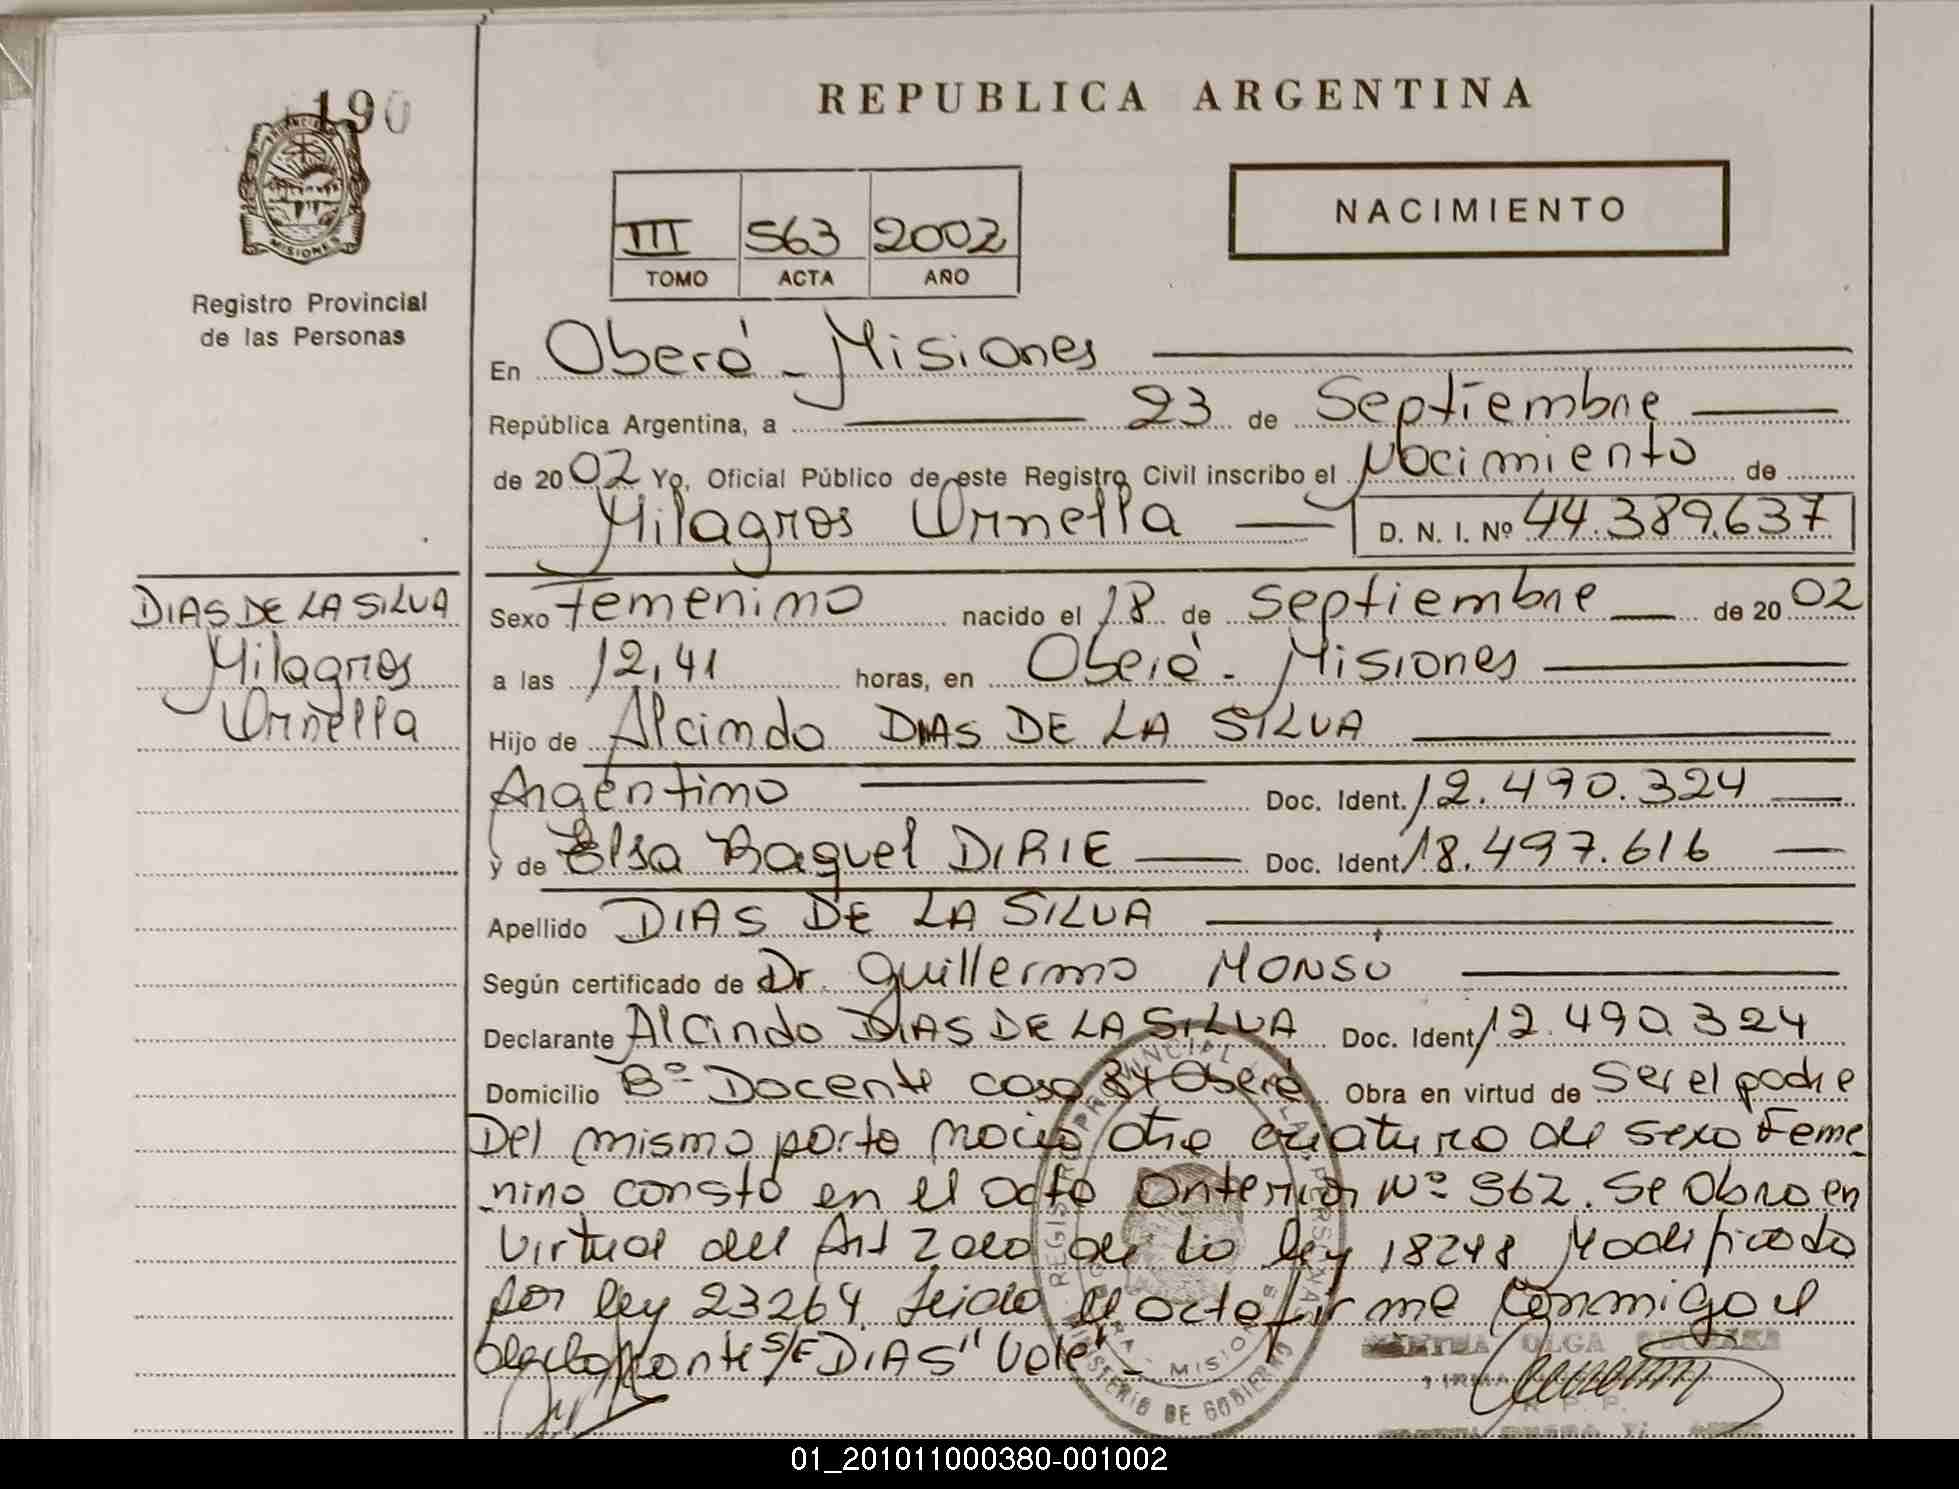 190
REPUBLICA ARGENTINA
MISIONES
Registro Provincial
de las Personas
III 563 2002
TOMO ACTA AÑO
NACIMIENTO
En Oberá - Misiones
República Argentina, a 23 de Septiembre
de 2002 Yo, Oficial Público de este Registro Civil inscribo el Nacimiento de
Milagros Ornella D. N. I. Nº 44.389.637
DIAS DE LA SILVA
Milagros
Ornella
Sexo Femenino nacido el 18 de Septiembre de 2002
a las 12,41 horas, en Oberá - Misiones
Hijo de Alcindo DIAS DE LA SILVA
Argentino Doc. Ident. 12.490.324
y de Elsa Raquel DIRIE Doc. Ident 18.497.616
Apellido DIAS DE LA SILVA
Según certificado de Dr. Guillermo MONSÚ
Declarante Alcindo DIAS DE LA SILVA Doc. Ident 12.490.324
Domicilio Bº Docente casa 84 Oberá Obra en virtud de Ser el padre
Del mismo parto nacio otra criatura de sexo Feme
nino consta en el acta anterior Nº 562. Se Obra en
virtud del Art 2do de la ley 18248 Modificada
por ley 23264. Leida el acta firme conmigo el
declarante S/E DIAS "Vale" -
REGISTRO PROVINCIAL DE LAS PERSONAS
MISIONES
MINISTERIO DE GOBIERNO
OLGA
01_201011000380-001002